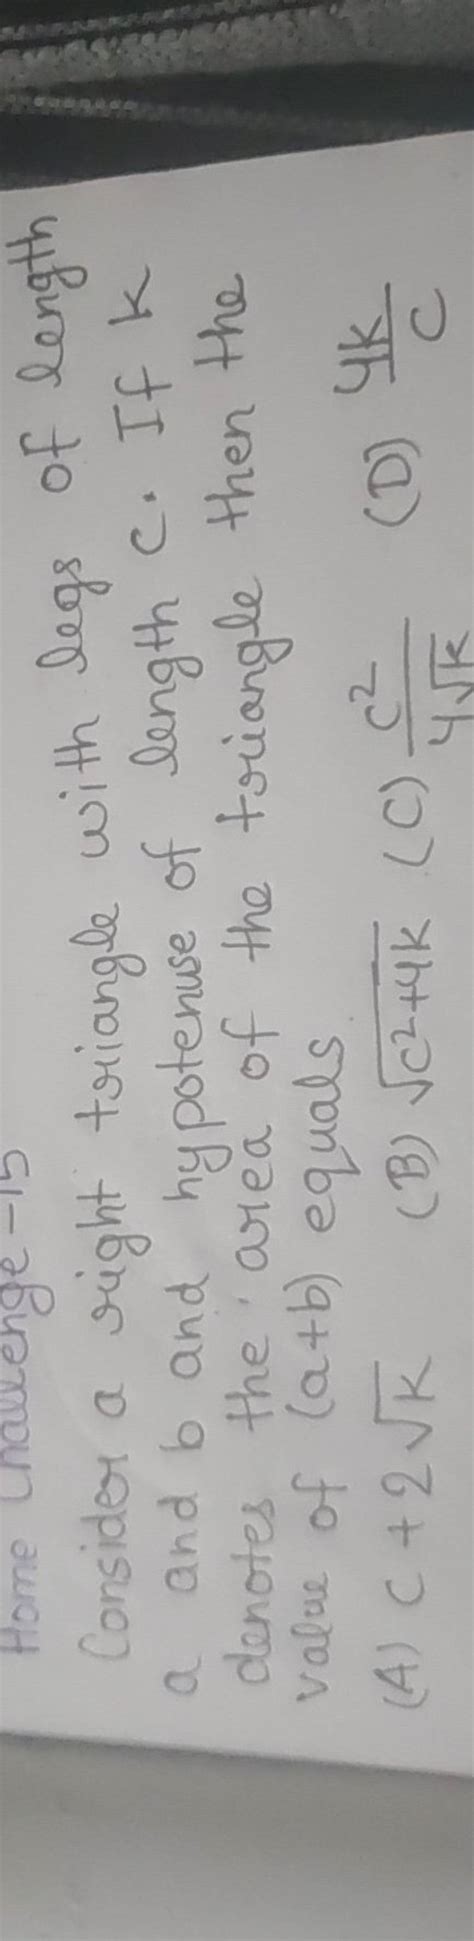 Home Challenge-15
Consider a right triangle with legs of length
a and b and hypotenuse of length c. If K
denotes the area of the triangle then the
value of (a+b) equals
(A) c + 2√K (B) √(c²+4K) (C) c²/4√K (D) 4K/c